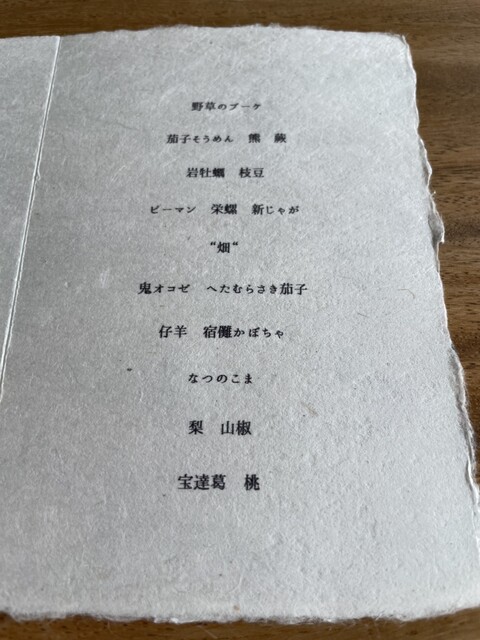 野草のブーケ
茄子そうめん　熊　蕨
岩牡蠣　枝豆
ピーマン　栄螺　新じゃが
“畑“
鬼オコゼ　へたむらさき茄子
仔羊　宿儺かぼちゃ
なつのこま
梨　山椒
宝達葛　桃